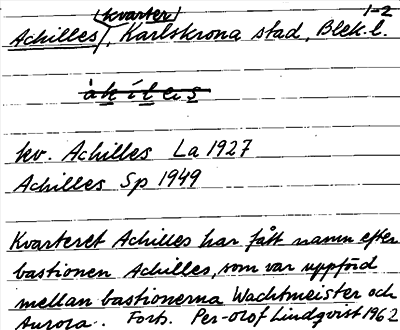 (kvarter) 1-2
Achilles, Karlskrona stad, Blek. l.
àkíleṣ
kv. Achilles La 1927
Achilles Sp 1949
Kvarteret Achilles har fått namn efter
bastionen Achilles, som var uppförd
mellan bastionerna Wachtmeister och
Aurora. Forts. Per-Olof Lindqvist 1962